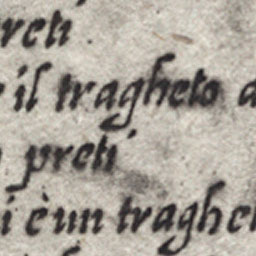 reti
il tragheto
preti
i è un traghe